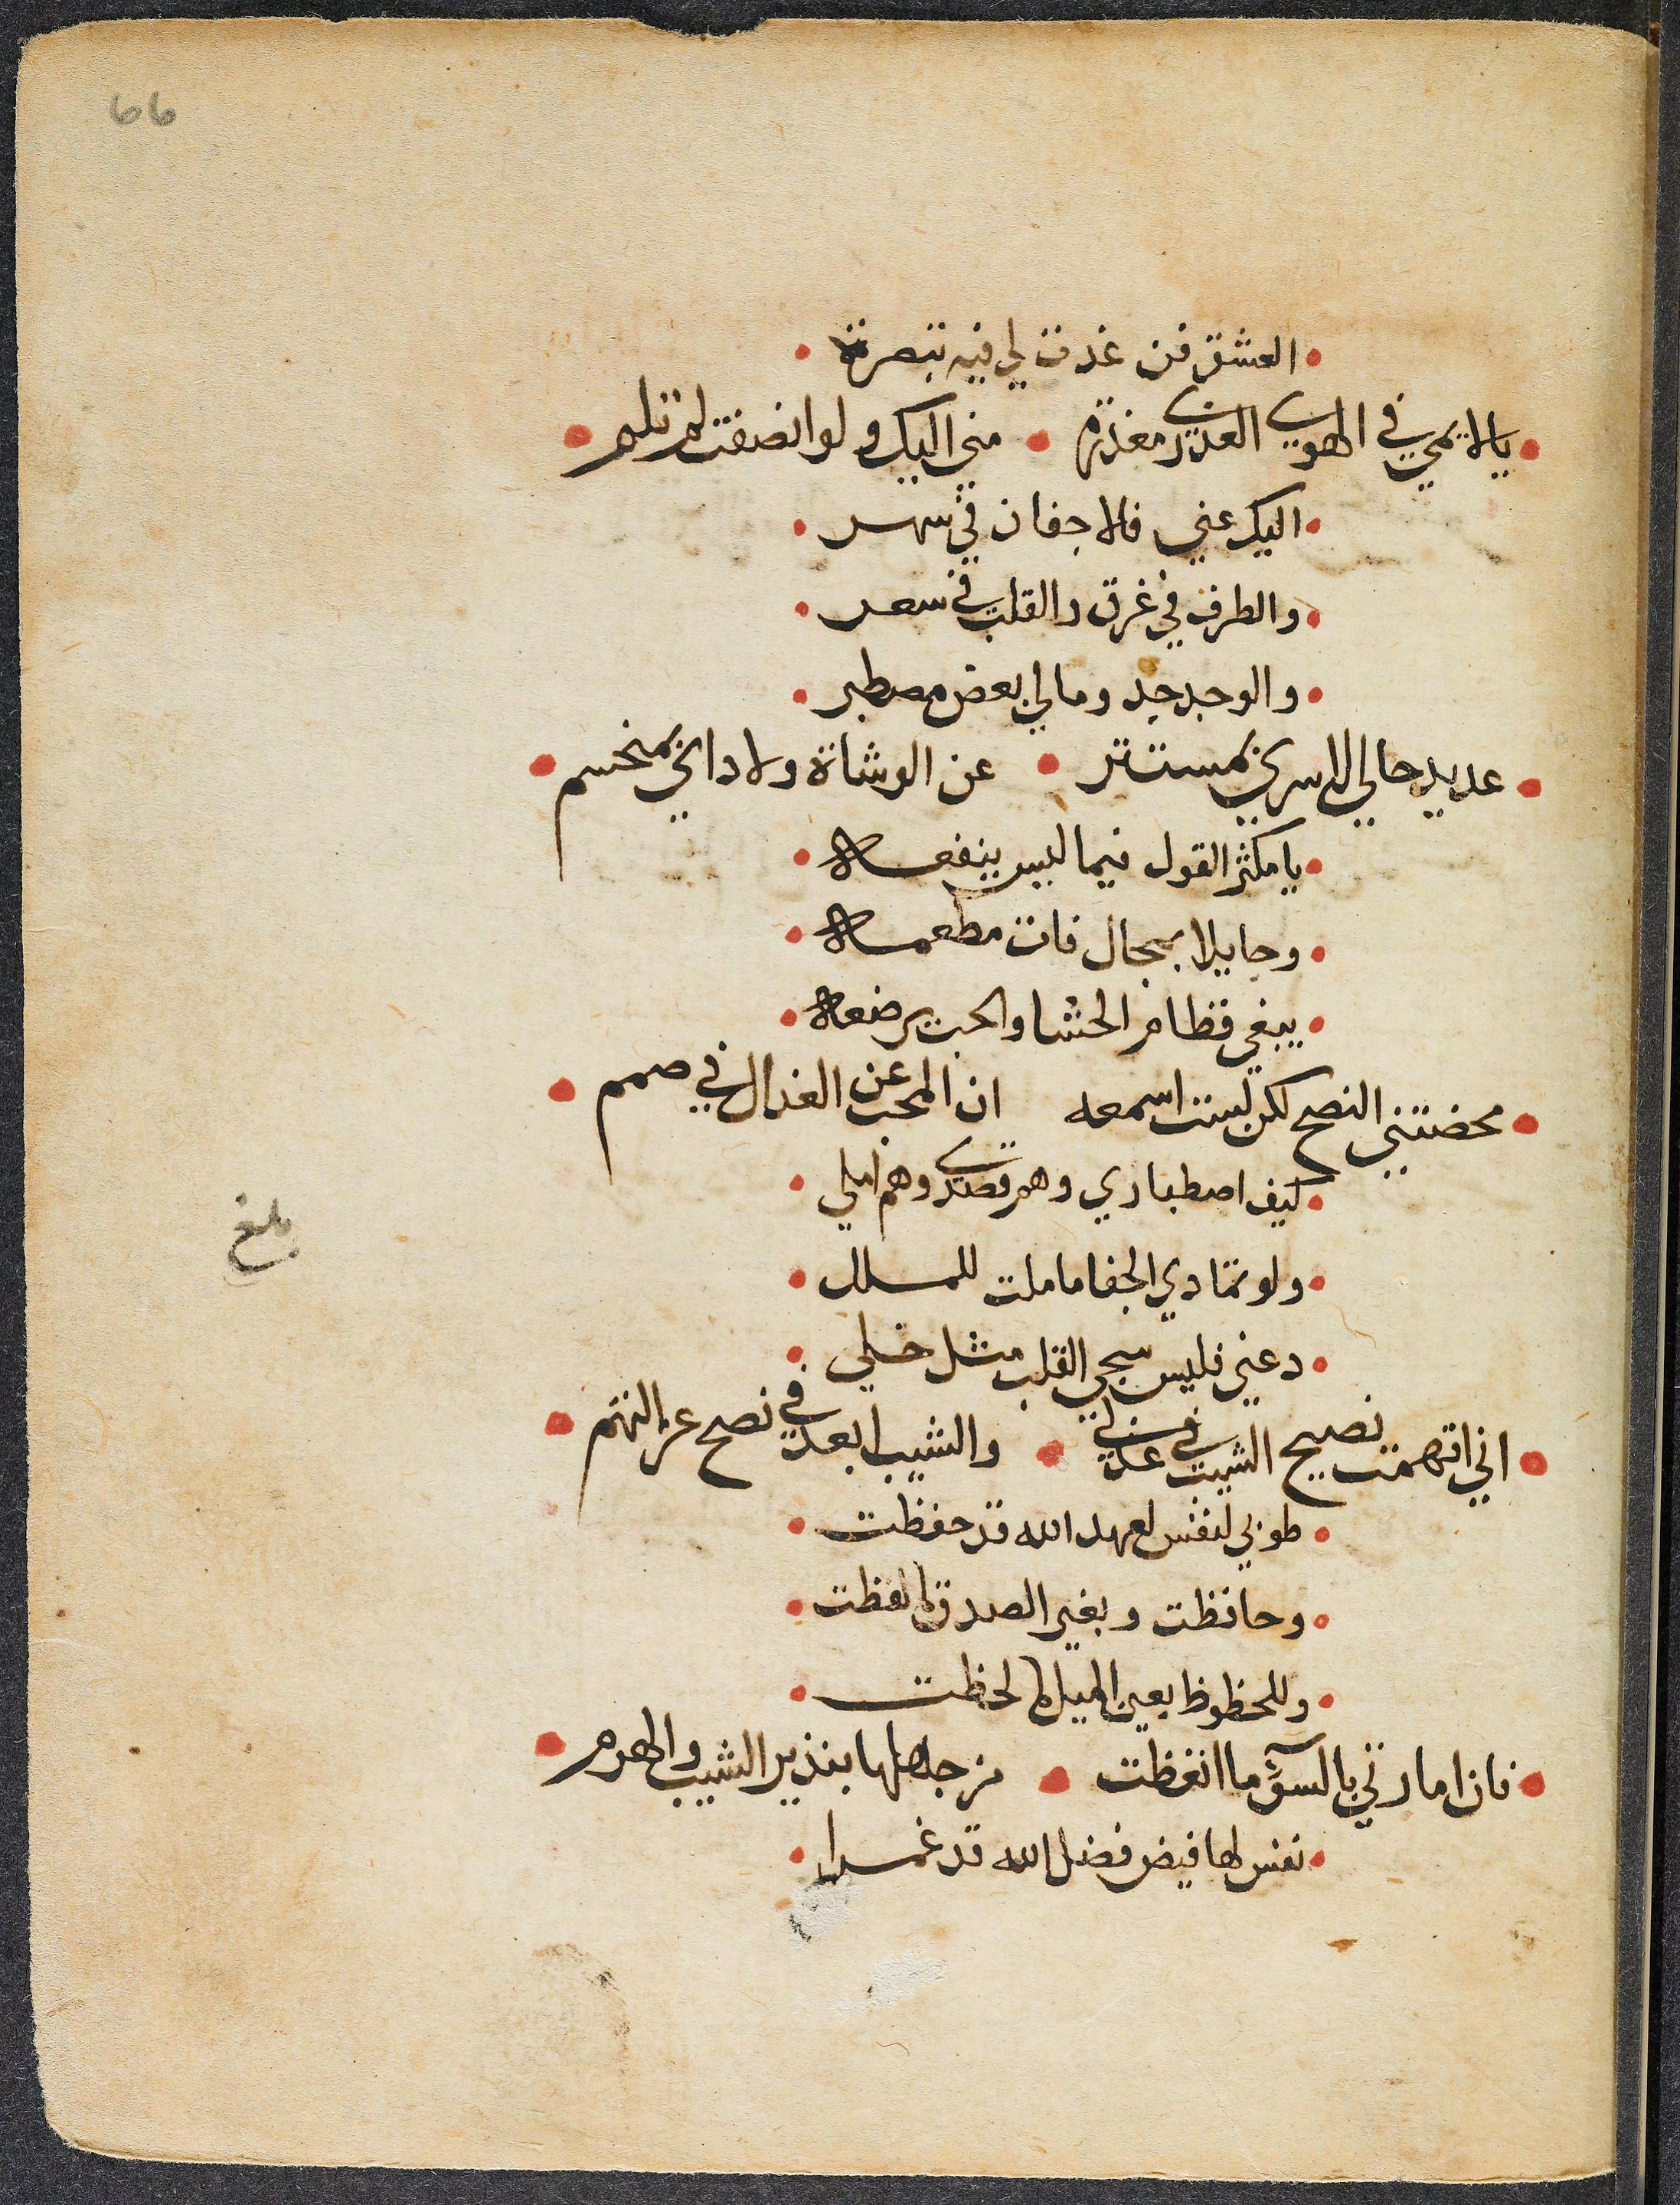 العشق فن غدت لي فيه تبصرة
يا لايمي في الهوي العذري معذرة مني اليك ولو انصفت لم تلم
اليك عني فالاجفان في سهر
والطرف في غرق والقلب في سعر
والوجد جد ومالي بعض مصطبر
عدتك حالي لا سري بمستتر عن الوشاة ولا دائي بمنحسم
يا مكثر القول فيما ليس ينفعه
وحايلا بمحال فات مطمعه
يبغي فطام الحشا والحب يرضعه
محضتني النصح لكن لست اسمعه ان المحب عن العذال في صمم
كيف اصطباري وهم قصدي وهم املي
ولو تمادي الجفا ما ملت للملل
دعني فليس شجي القلب مثل خلي
اني اتهمت نصيح الشيب في عذلي والشيب ابعد في نصح عن التهم
طوبي لنفس لعهد الله قد حفظت
وحافظت وبغير الصدق ما لفظت
وللحظوظ بعين الميل ما لحظت
فان امارتي بالسوء ما اتعظت من جهلها بنذير الشيب والهرم
نفس لها فيض فضل الله قد غمرا
بلغ